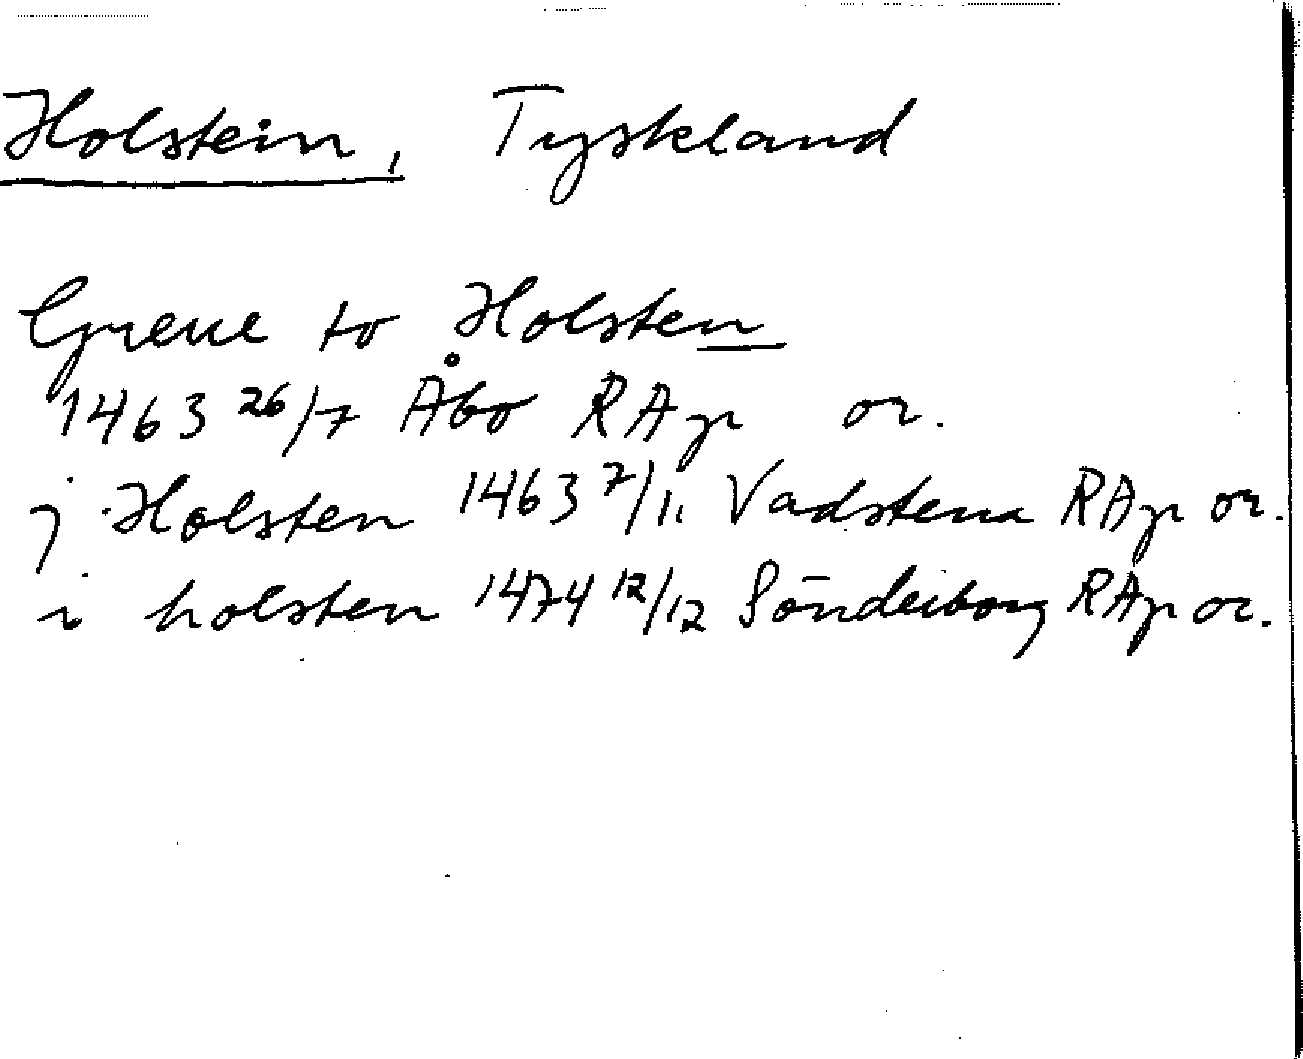 Holstein, Tyskland
Greue to Holsten
1463 26/7 Åbo RAp or.
j Holsten 1463 7/11 Vadstena RAp or.
i holsten 1474 12/12 Sönderborg RAp or.